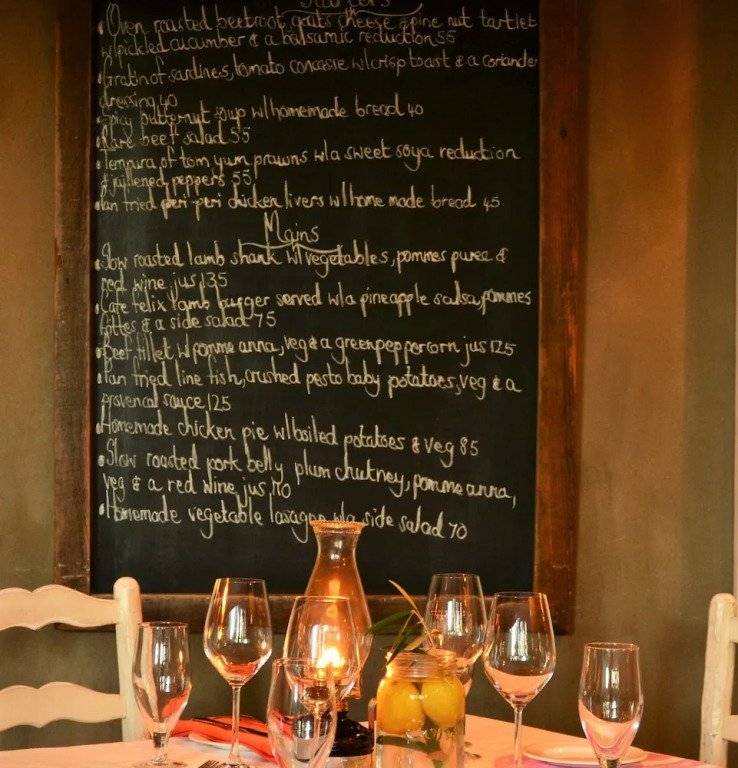 Starters
• Oven roasted beetroot, goats cheese & pine nut tartlet
w/pickled cucumber & a balsamic reduction 55
• Gratin of sardines, tomato concasse w/crisp toast & a coriander
dressing 40
• Spicy butternut soup w/homemade bread 40
• Rare beef salad 55
• Tempura of tom yum prawns w/a sweet soya reduction
& jullened peppers 55
• Pan fried peri-peri chicken livers w/home made bread 45
Mains
• Slow roasted lamb shank w/vegetables, pommes puree &
red wine jus 135
• Cafe Felix lamb burger served w/a pineapple salsa, pommes
frites & a side salad 75
• Beef fillet w pomme anna, veg & a green peppercorn jus 125
• Pan fried line fish, crushed pesto baby potatoes, veg & a
provencal sauce 125
• Homemade chicken pie w/boiled potatoes & veg 85
• Slow roasted pork belly plum chutney, pomme anna,
veg & a red wine jus 110
• Homemade vegetable lasagne w/a side salad 70